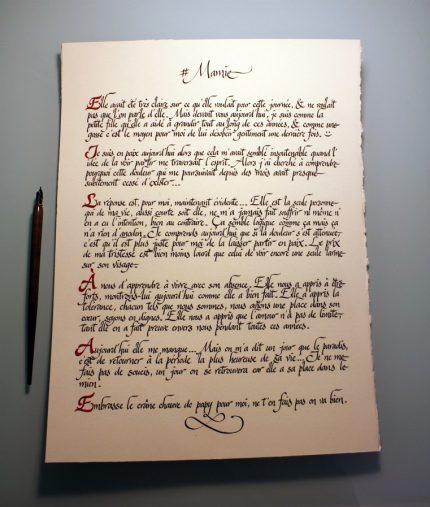 # Mamie
Elle avait été très claire sur ce qu'elle voulait pour cette journée, & ne voulait
pas que l'on parle d'elle. Mais devant vous aujourd'hui, je suis comme la
petite fille qu'elle a aidé à grandir tout au long de ces années, & comme une
gosse c'est le moyen pour moi de lui désobéir gentiment une dernière fois. :)
Je suis en paix aujourd'hui alors que cela m'avait semblé insoutenable quand l'
idée de la voir partir me traversait l'esprit. Alors j'ai cherché à comprendre
pourquoi cette douleur qui me poursuivait depuis des mois avait presque
subitement cessé d'exister...
La réponse est, pour moi, maintenant évidente... Elle est la seule personne
qui de ma vie, aussi courte soit elle, ne m'a jamais fait souffrir ni même n'
en a eu l'intention, bien au contraire. Ça semble logique comme ça mais ça
n'a rien d'anodin. Je comprends aujourd'hui que si la douleur s'est atténuée,
c'est qu'il est plus juste pour moi de la laisser partir en paix. Le prix
de ma tristesse est bien moins lourd que celui de voir encore une seule larme
sur son visage.
À nous d'apprendre à vivre avec son absence. Elle nous a appris à être
forts, montrons-lui aujourd'hui comme elle a bien fait. Elle a appris la
tolérance, chacun tels que nous sommes, nous avions une place dans son
cœur, soyons en dignes. Elle nous a appris que l'amour n'a pas de limite
tant elle en a fait preuve envers nous pendant toutes ces années.
Aujourd'hui elle me manque... Mais on m'a dit un jour que le paradis,
c'est de retourner à la période la plus heureuse de sa vie... Je ne me
fais pas de soucis, un jour on se retrouvera car elle a sa place dans le
mien.
Embrasse le crâne chauve de papy pour moi, ne t'en fais pas on va bien.